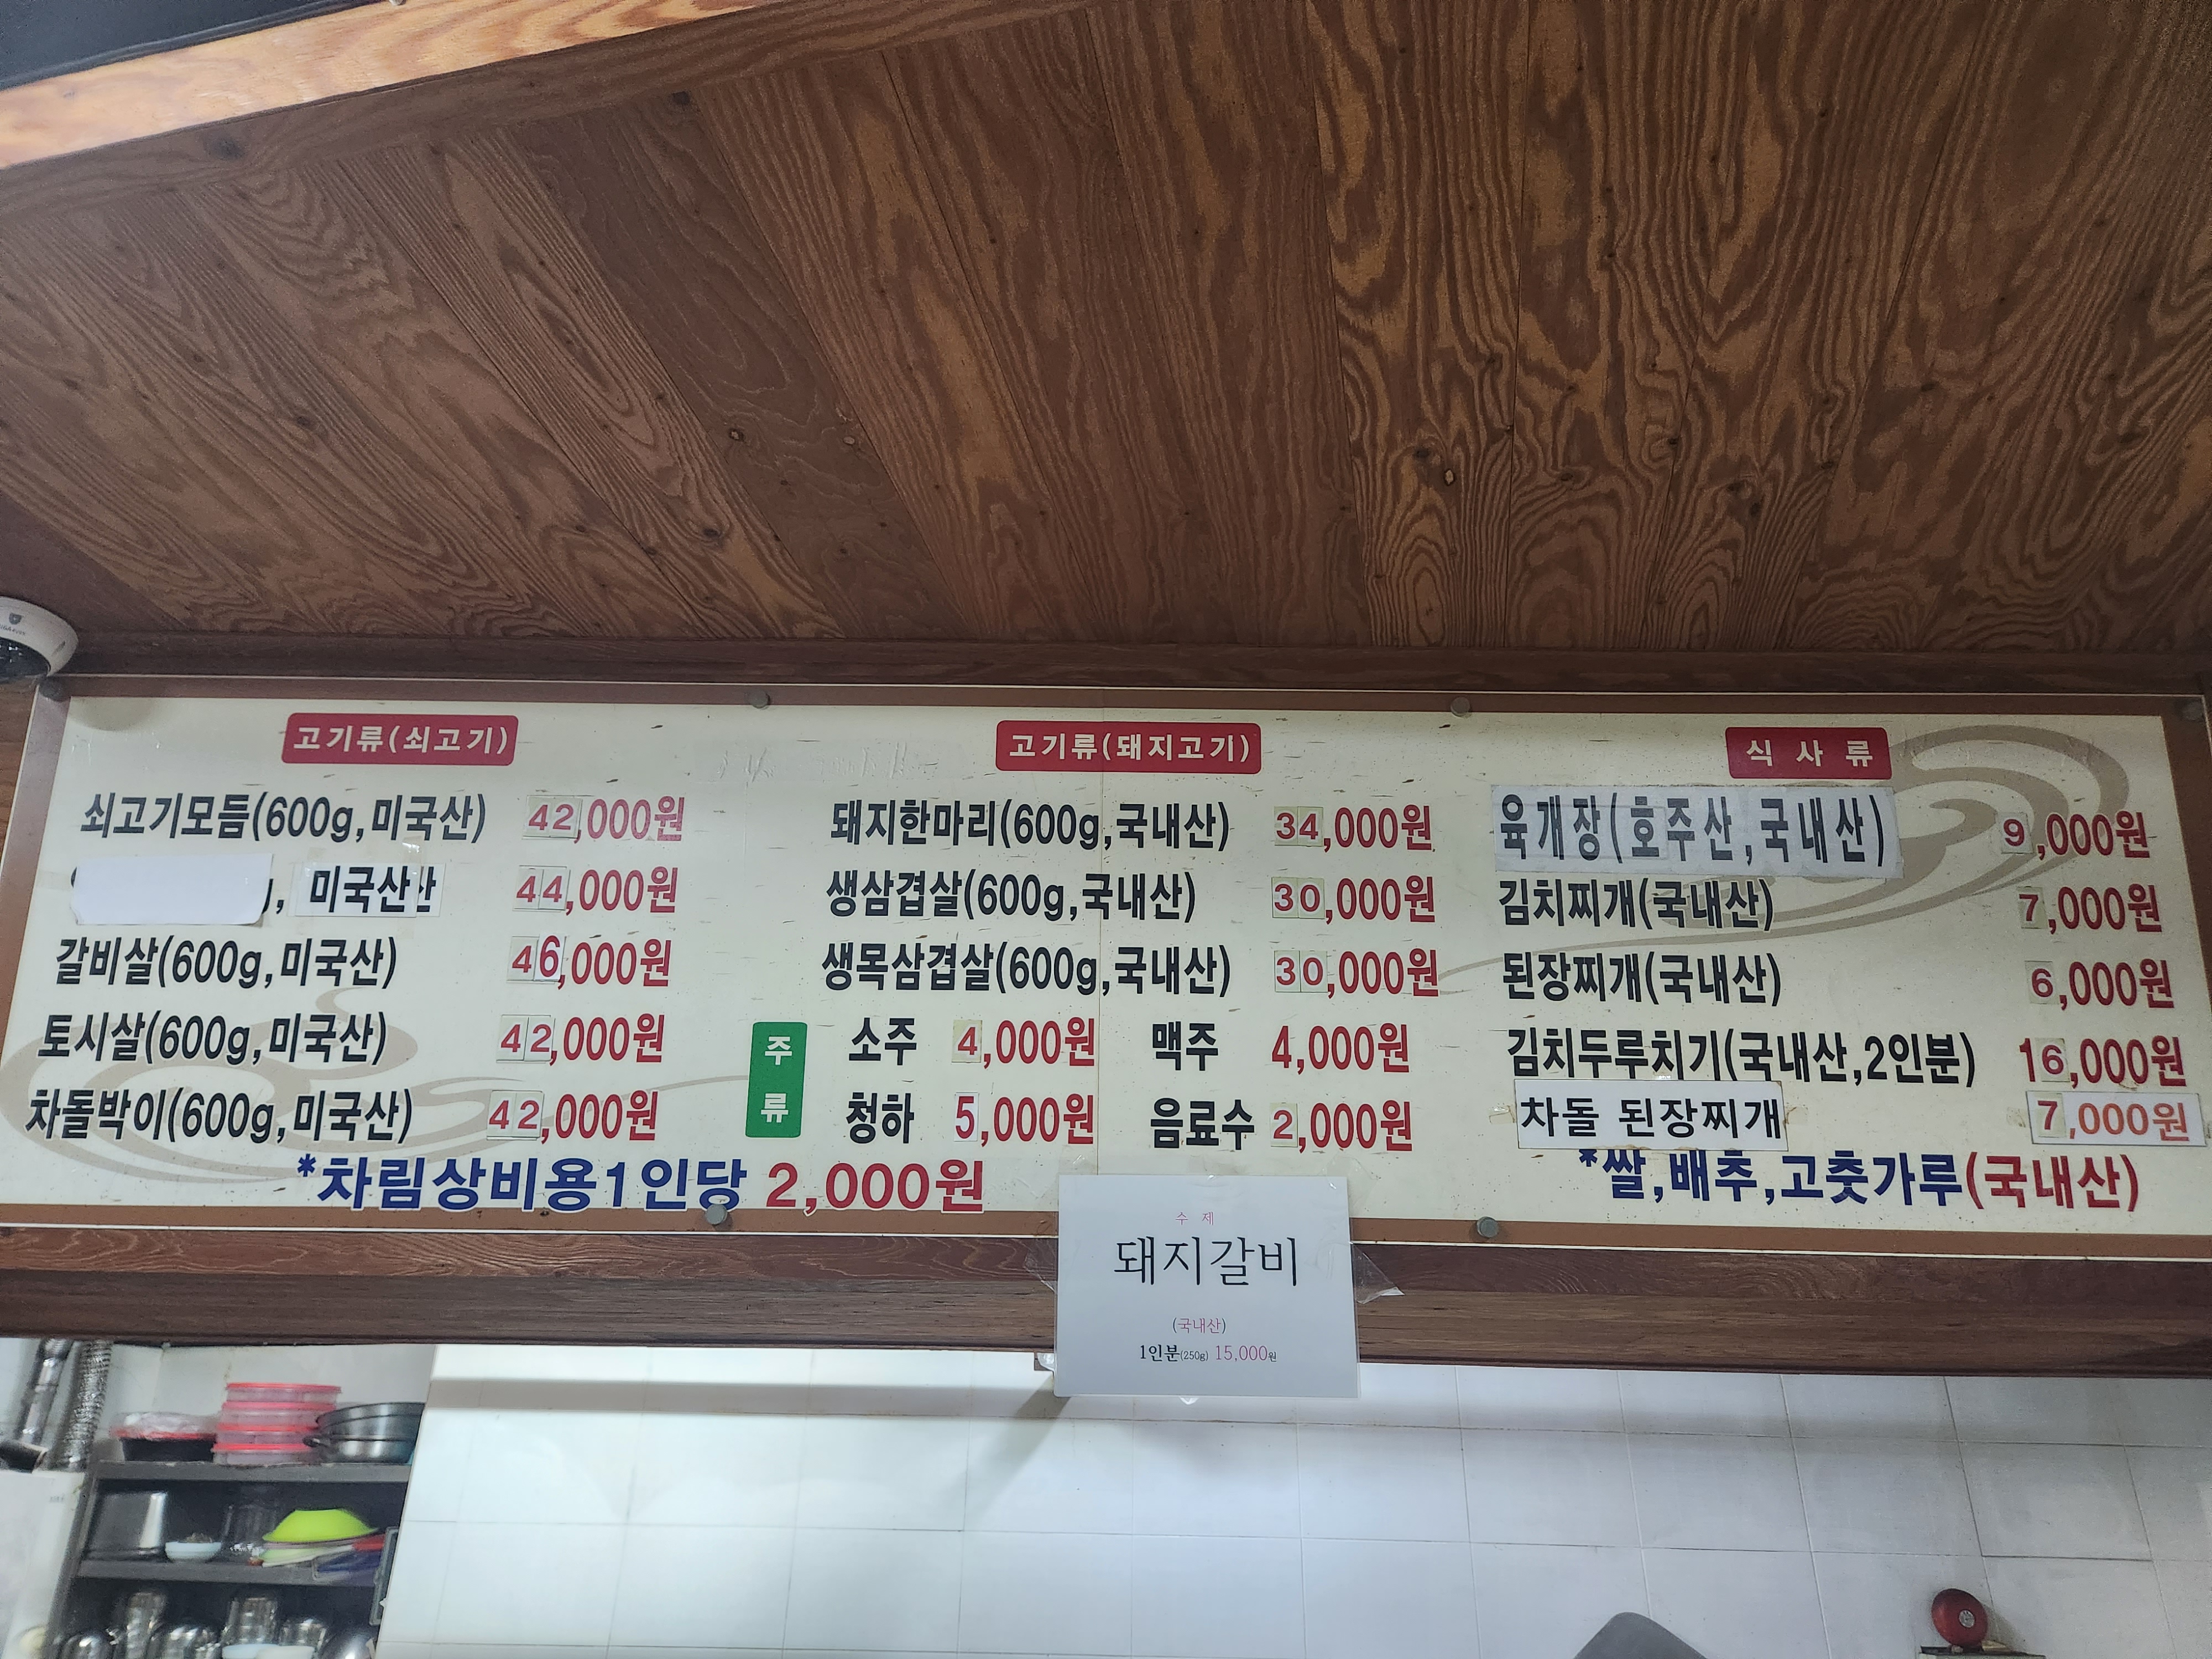 고기류(쇠고기)
쇠고기모듬(600g,미국산) 42,000원
, 미국산 44,000원
갈비살(600g,미국산) 46,000원
토시살(600g,미국산) 42,000원
차돌박이(600g,미국산) 42,000원
*차림상비용1인당 2,000원
고기류(돼지고기)
돼지한마리(600g,국내산) 34,000원
생삼겹살(600g,국내산) 30,000원
생목삼겹살(600g,국내산) 30,000원
주류
소주 4,000원 맥주 4,000원
청하 5,000원 음료수 2,000원
식사류
육개장(호주산,국내산) 9,000원
김치찌개(국내산) 7,000원
된장찌개(국내산) 6,000원
김치두루치기(국내산,2인분) 16,000원
차돌 된장찌개 7,000원
*쌀,배추,고춧가루(국내산)
수제
돼지갈비
(국내산)
1인분(250g) 15,000원